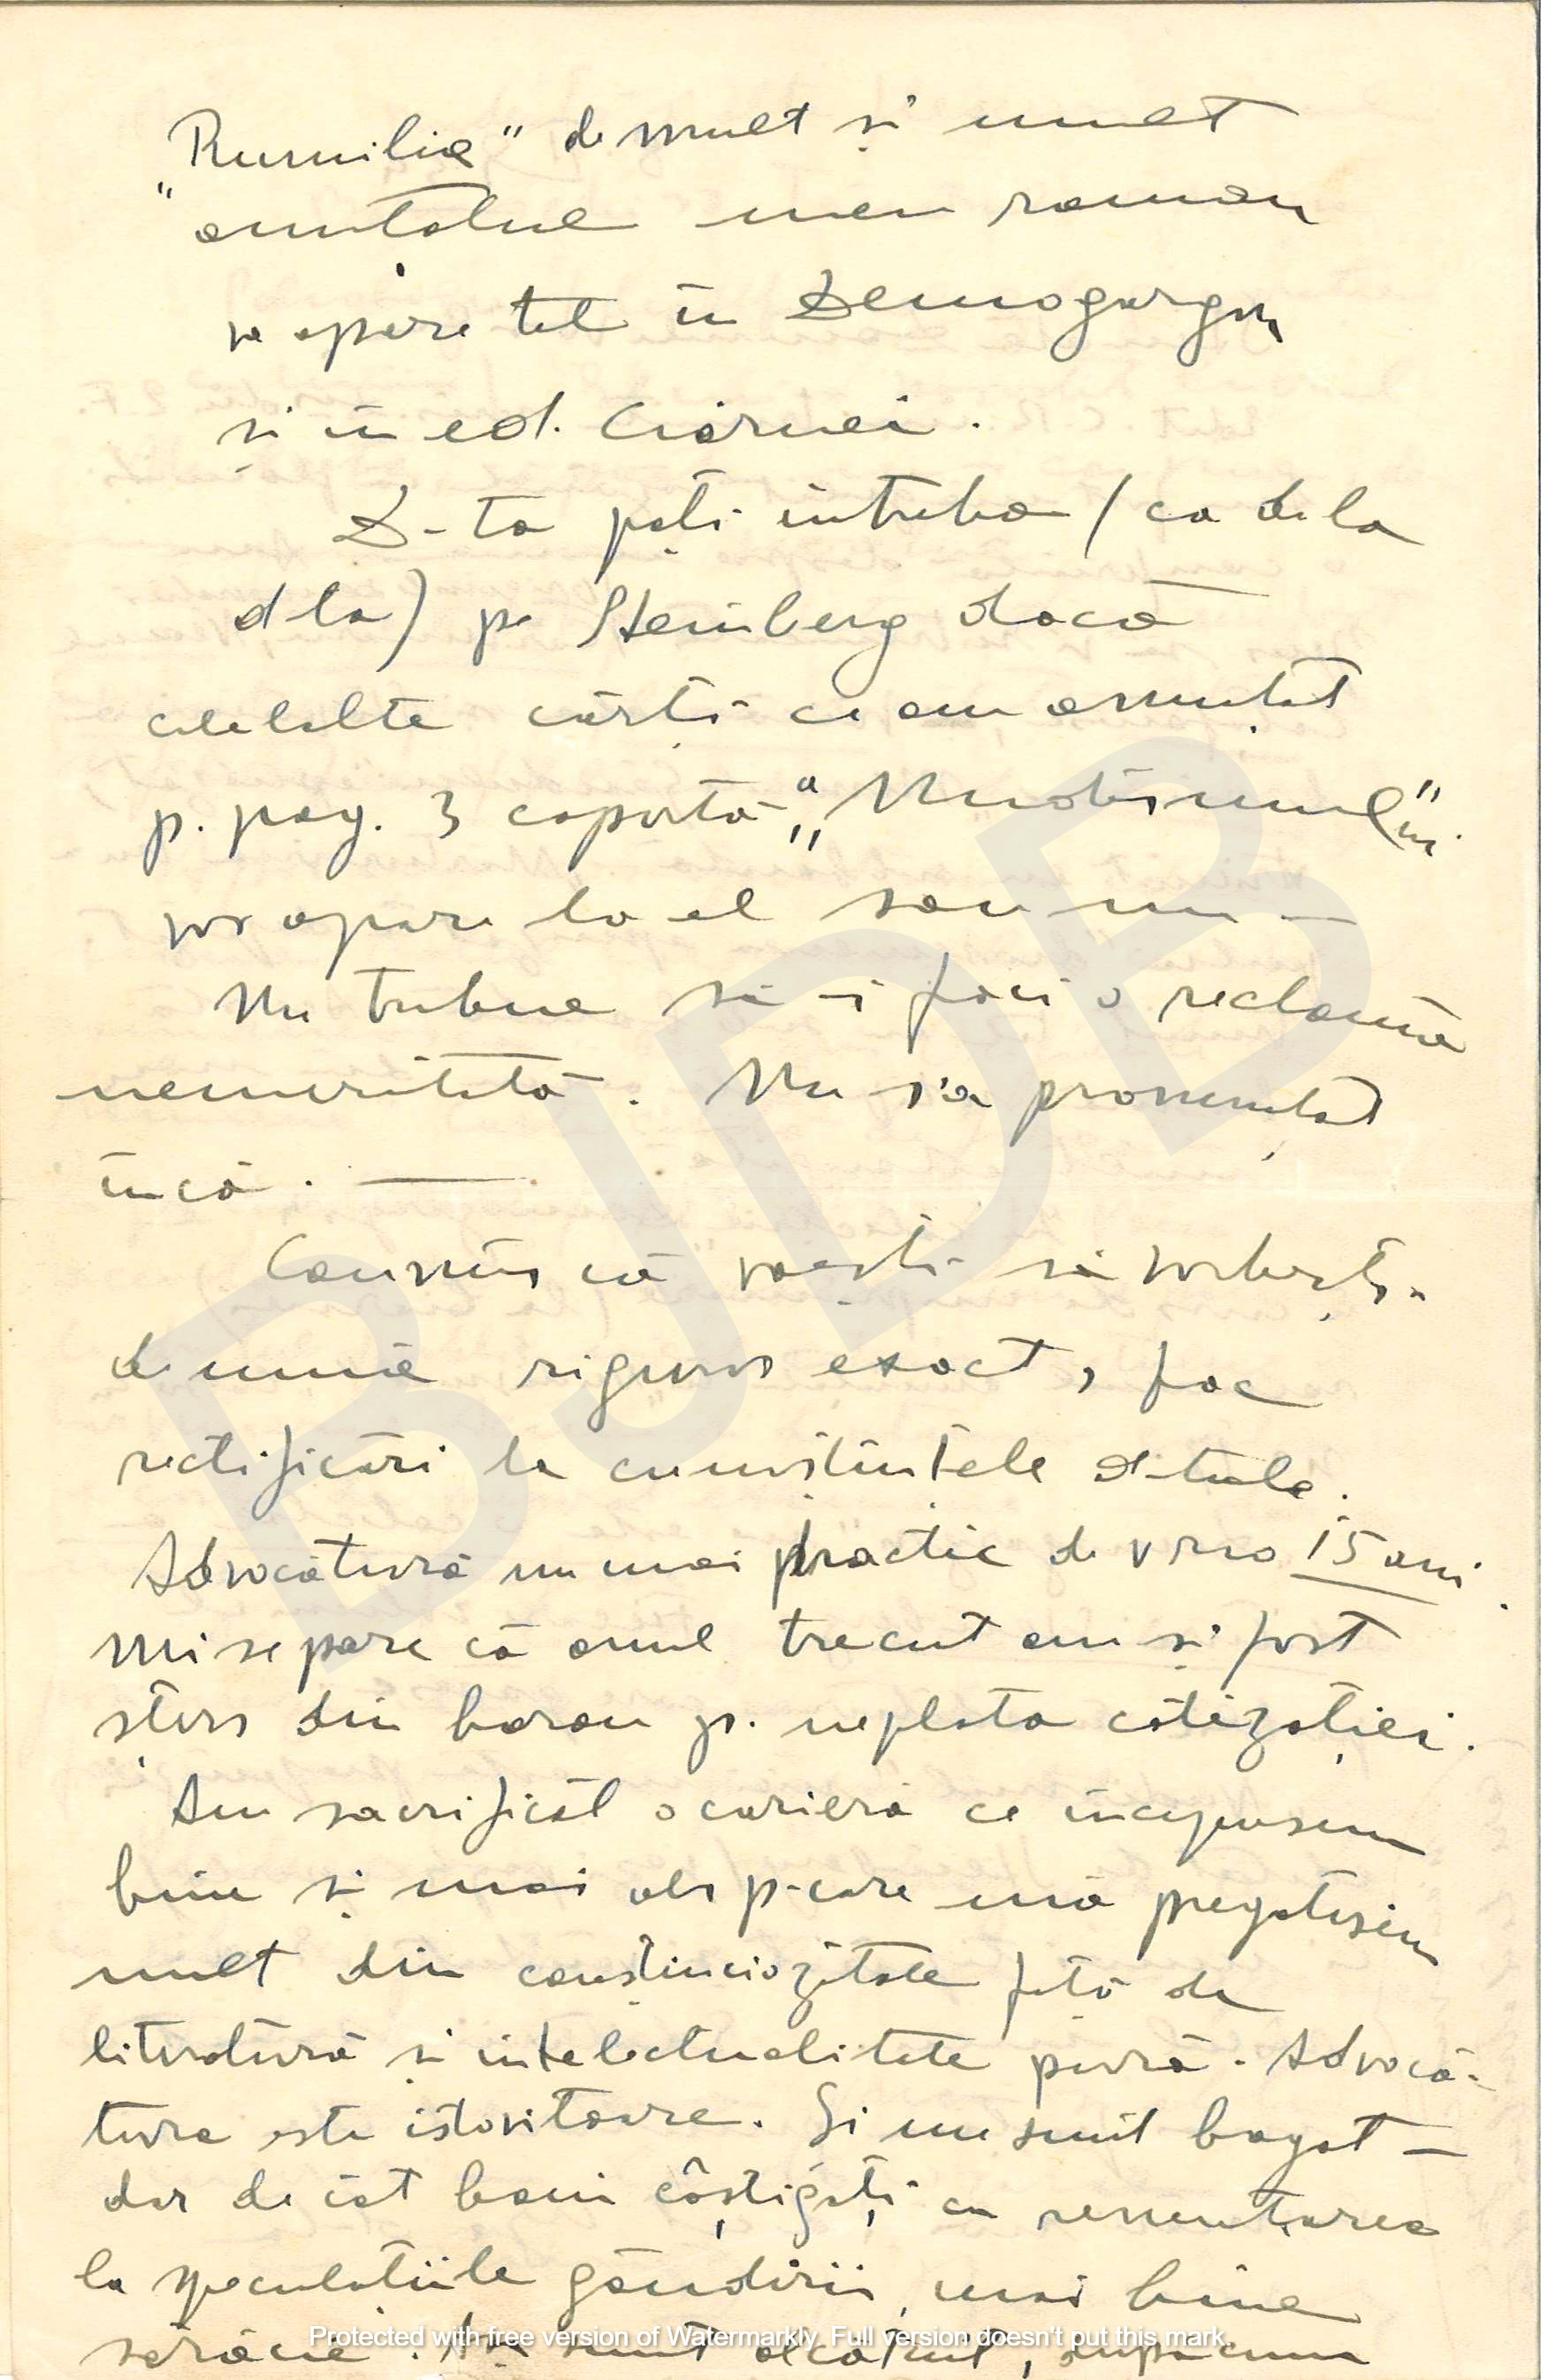 „Rumilia" de mult și mult
anunțatul meu roman
va apare tot în Demogorgon
și în ed. Ciornei.
D-ta poți întreba (ca dela
d ta) pe Steinberg dacă
celelalte cărți ce am anunțat
p. pag. 3 copertă a „Nudismului"
vor apare la el sau nu —
Nu trebue să-i faci o reclamă
nemeritată. Nu s'a pronunțat
încă. —
Convins că voești să vorbești
de mine riguros exact, fac
rectificări la cunoștințele d-tale.
Advocatură nu mai practic de vreo 15 ani.
Mi se pare că anul trecut am și fost
șters din barou p. neplata cotizației.
Am sacrificat o carieră ce începusem
bine și mai ales p-care mă pregătisem
mult din conștinciozitate față de
literatură și intelectualitate pură. Advocă-
tura este istovitoare. Și nu sunt bogat —
dar de cât bani câștigați cu renunțarea
la speculațiile gândirii, mai bine
sărăcie. Așa sunt alcătuit, după cum
BJDB
Protected with free version of Watermarkly. Full version doesn't put this mark.